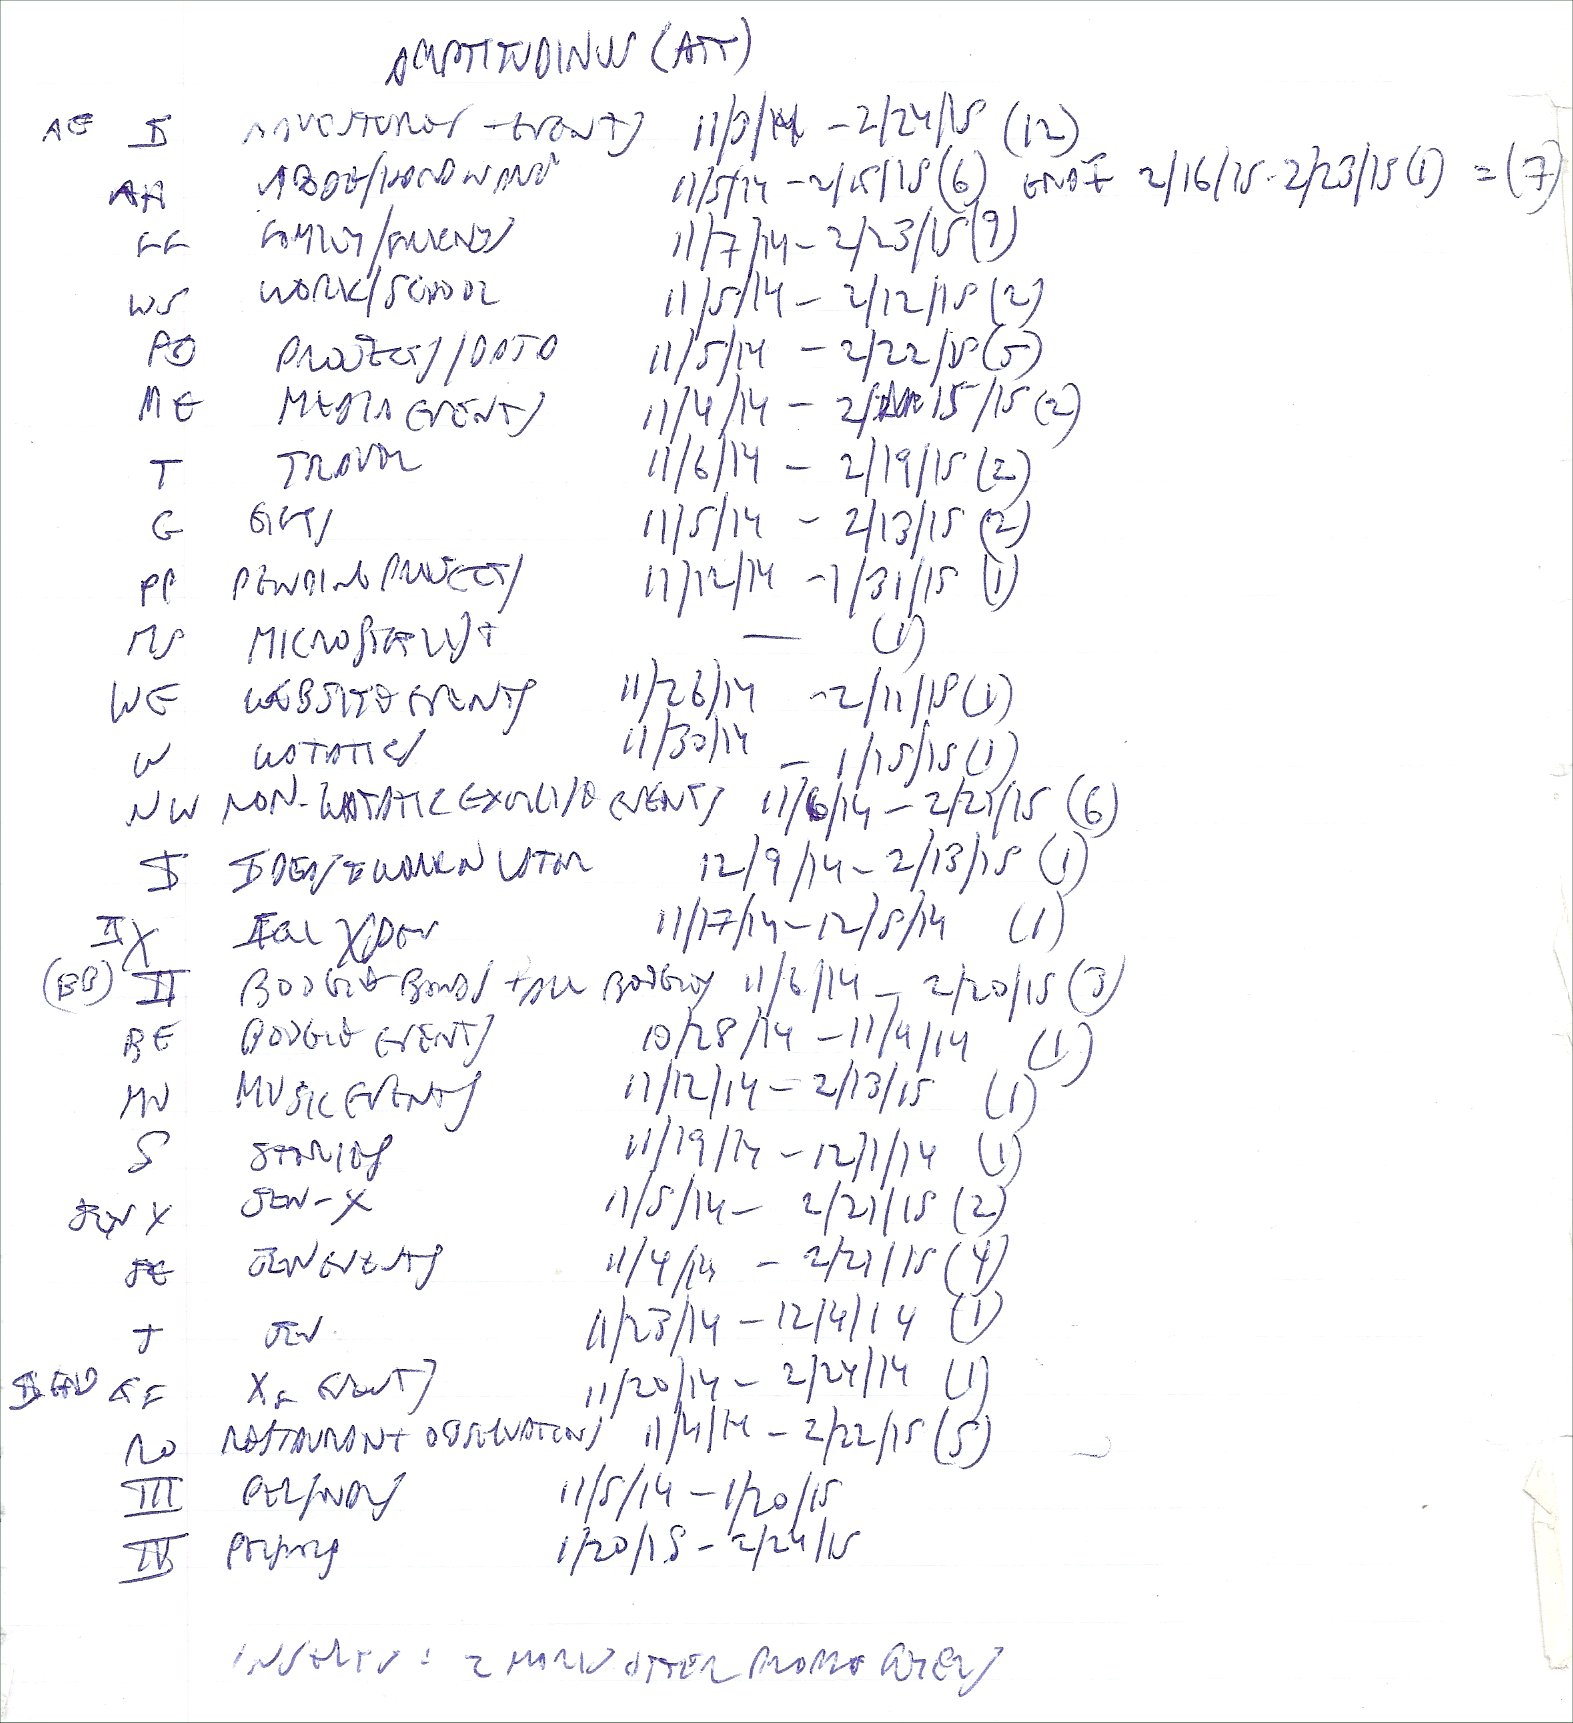 AMPTITUDINUS (ATT)
AE I ADVENTURES - EVENTS 11/3/14 - 2/24/15 (12)
AH ABODE/HARDWARE 11/5/14 - 2/15/15 (6) END I 2/16/15 - 2/23/15 (1) = (7)
FF FAMILY/FRIENDS 11/7/14 - 2/23/15 (9)
WS WORK/SCHOOL 11/5/14 - 2/12/15 (2)
PD PROJECTS/DATA 11/5/14 - 2/22/15 (5)
ME MEDIA EVENTS 11/4/14 - 2/15/15 (2)
T TRAVEL 11/6/14 - 2/19/15 (2)
G GIFTS 11/5/14 - 2/13/15 (2)
PP PENDING PROJECTS 11/12/14 - 1/31/15 (1)
MS MICROSITE LIST — (1)
WE WEBSITE EVENTS 11/26/14 - 2/11/15 (1)
W WATATICS 11/30/14 - 1/15/15 (1)
NW NON-WATATIC EVENTS 11/6/14 - 2/21/15 (6)
I IDEAS 12/9/14 - 2/13/15 (1)
IIX 11/17/14 - 12/5/14 (1)
(BB) II BOOGLE BOOKS + ALL BOOGLES 11/6/14 - 2/20/15 (3)
BE BOOGLE EVENTS 10/28/14 - 11/4/14 (1)
MU MUSIC EVENTS 11/12/14 - 2/13/15 (1)
S STORIES 11/19/14 - 12/1/14 (1)
JEN X JEN-X 11/5/14 - 2/21/15 (2)
JE JEN EVENTS 11/4/14 - 2/21/15 (4)
J JEN 11/23/14 - 12/4/14 (1)
EVENTS 11/20/14 - 2/24/14 (1)
RO RESTAURANT OBSERVATIONS 11/4/14 - 2/22/15 (5)
III 11/5/14 - 1/20/15
IV 1/20/15 - 2/24/15
INSERTS: 2